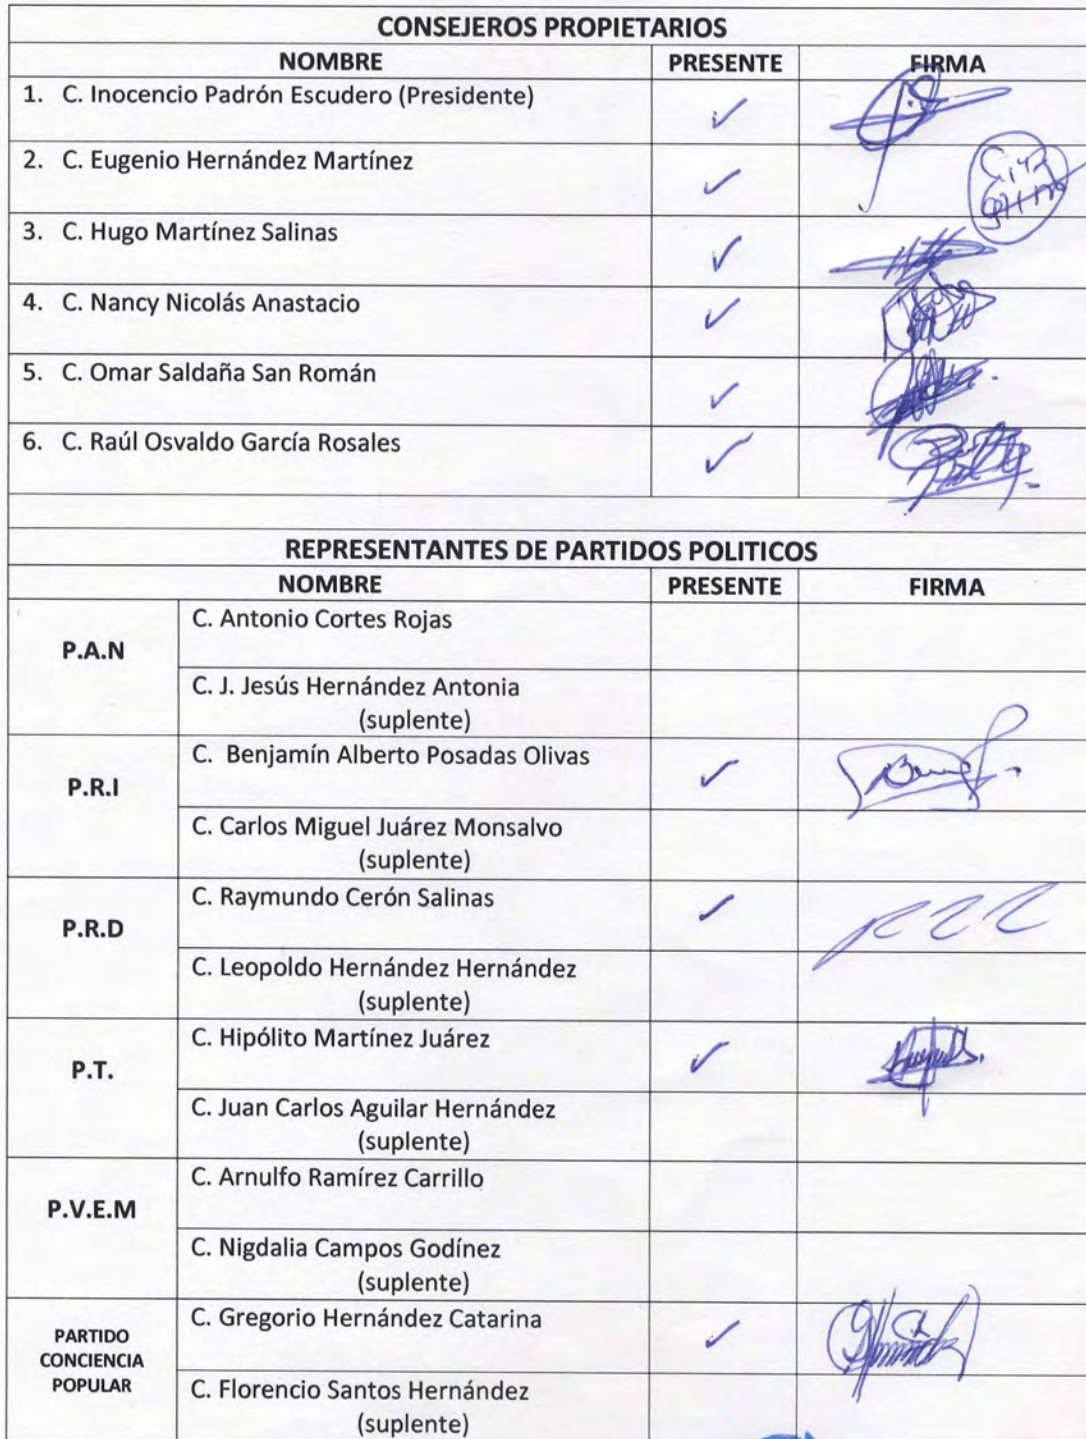 CONSEJEROS PROPIETARIOS
NOMBRE PRESENTE FIRMA
1. C. Inocencio Padrón Escudero (Presidente) ✓
2. C. Eugenio Hernández Martínez ✓
3. C. Hugo Martínez Salinas ✓
4. C. Nancy Nicolás Anastacio ✓
5. C. Omar Saldaña San Román ✓
6. C. Raúl Osvaldo García Rosales ✓
REPRESENTANTES DE PARTIDOS POLITICOS
NOMBRE PRESENTE FIRMA
P.A.N
C. Antonio Cortes Rojas
C. J. Jesús Hernández Antonia
(suplente)
P.R.I
C. Benjamín Alberto Posadas Olivas ✓
C. Carlos Miguel Juárez Monsalvo
(suplente)
P.R.D
C. Raymundo Cerón Salinas ✓
C. Leopoldo Hernández Hernández
(suplente)
P.T.
C. Hipólito Martínez Juárez ✓
C. Juan Carlos Aguilar Hernández
(suplente)
P.V.E.M
C. Arnulfo Ramírez Carrillo
C. Nigdalia Campos Godínez
(suplente)
PARTIDO
CONCIENCIA
POPULAR
C. Gregorio Hernández Catarina ✓
C. Florencio Santos Hernández
(suplente)